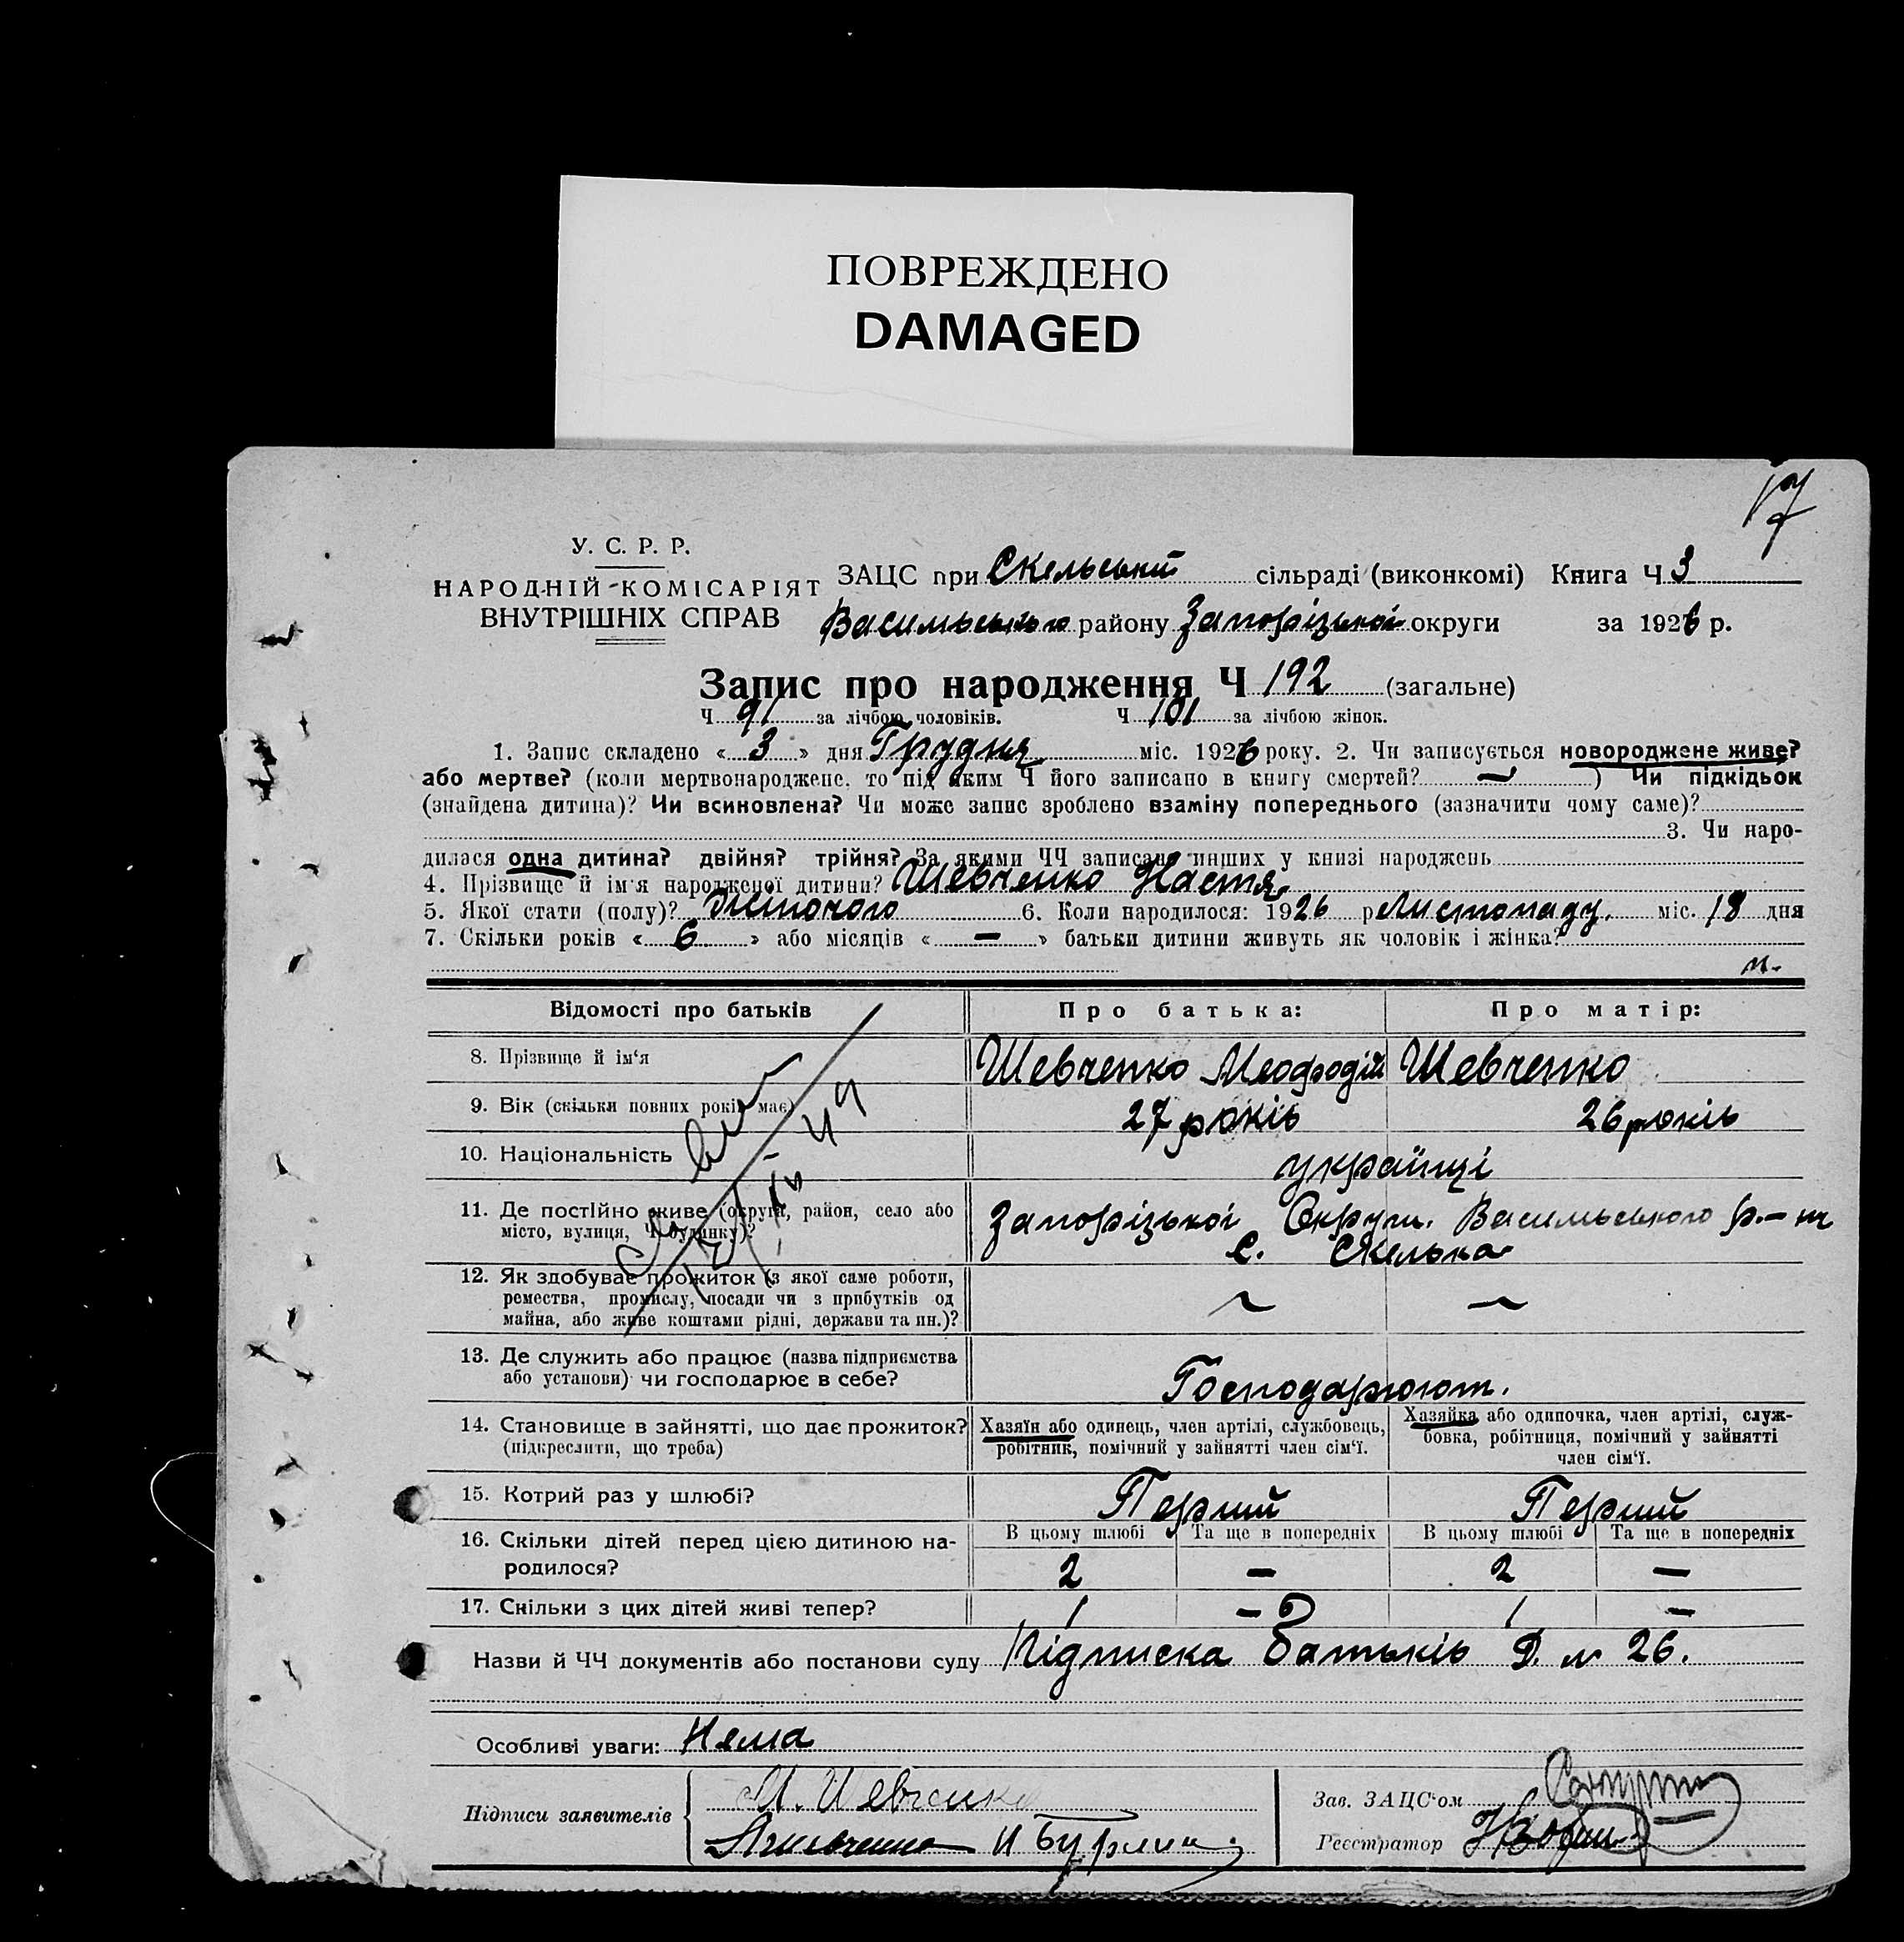 ПОВРЕЖДЕНО
DAMAGED
17
У. С. Р. Р.
НАРОДНІЙ КОМІСАРІЯТ
ВНУТРІШНІХ СПРАВ
ЗАЦС при Скельській сільраді (виконкомі) Книга Ч 3
Васильського району Запорізької округи за 1926 р.
Запис про народження Ч 192 (загальне)
Ч 91 за лічбою чоловіків. Ч 101 за лічбою жінок.
1. Запис складено « 3 » дня Грудня міс. 1926 року. 2. Чи записується новороджене живе?
або мертве? (коли мертвонароджене, то під яким Ч його записано в книгу смертей? — ) Чи підкідьок
(знайдена дитина)? Чи всиновлена? Чи може запис зроблено взаміну попереднього (зазначити чому саме)?
3. Чи наро-
дилася одна дитина? двійня? трійня? За якими ЧЧ записано инших у книзі народжень
4. Прізвище й ім'я народженої дитини? Шевченко Настя
5. Якої стати (полу)? Жіночого 6. Коли народилося: 1926 р Листопаду міс. 18 дня
7. Скільки років « 6 » або місяців « — » батьки дитини живуть як чоловік і жінка?
Відомості про батьків Про батька: Про матір:
8. Прізвище й ім'я Шевченко Меофодій Шевченко
9. Вік (скільки повних років має) 27 років 26 років
10. Національність українці
11. Де постійно живе (округа, район, село або Запорізької Округи. Васильського р.-ну
місто, вулиця, Ч будинку)? с. Скелька
12. Як здобуває прожиток (з якої саме роботи,
ремества, промислу, посади чи з прибутків од
майна, або живе коштами рідні, держави та ин.)?
13. Де служить або працює (назва підприємства
або установи) чи господарює в себе? Господарюют.
14. Становище в зайнятті, що дає прожиток? Хазяїн або одинець, член артілі, службовець, Хазяйка або одиночка, член артілі, служ-
(підкреслити, що треба) робітник, помічний у зайнятті член сім'ї. бовка, робітниця, помічний у зайнятті
член сім'ї.
15. Котрий раз у шлюбі? Перший Перший
В цьому шлюбі Та ще в попередніх В цьому шлюбі Та ще в попередніх
16. Скільки дітей перед цією дитиною на-
родилося? 2 — 2 —
17. Скільки з цих дітей живі тепер? 1 — 1 —
Назви й ЧЧ документів або постанови суду Підписка батьків Д. № 26.
Особливі уваги: Нема
Підписи заявителів М. Шевченко
Зав. ЗАЦС'ом
Реєстратор